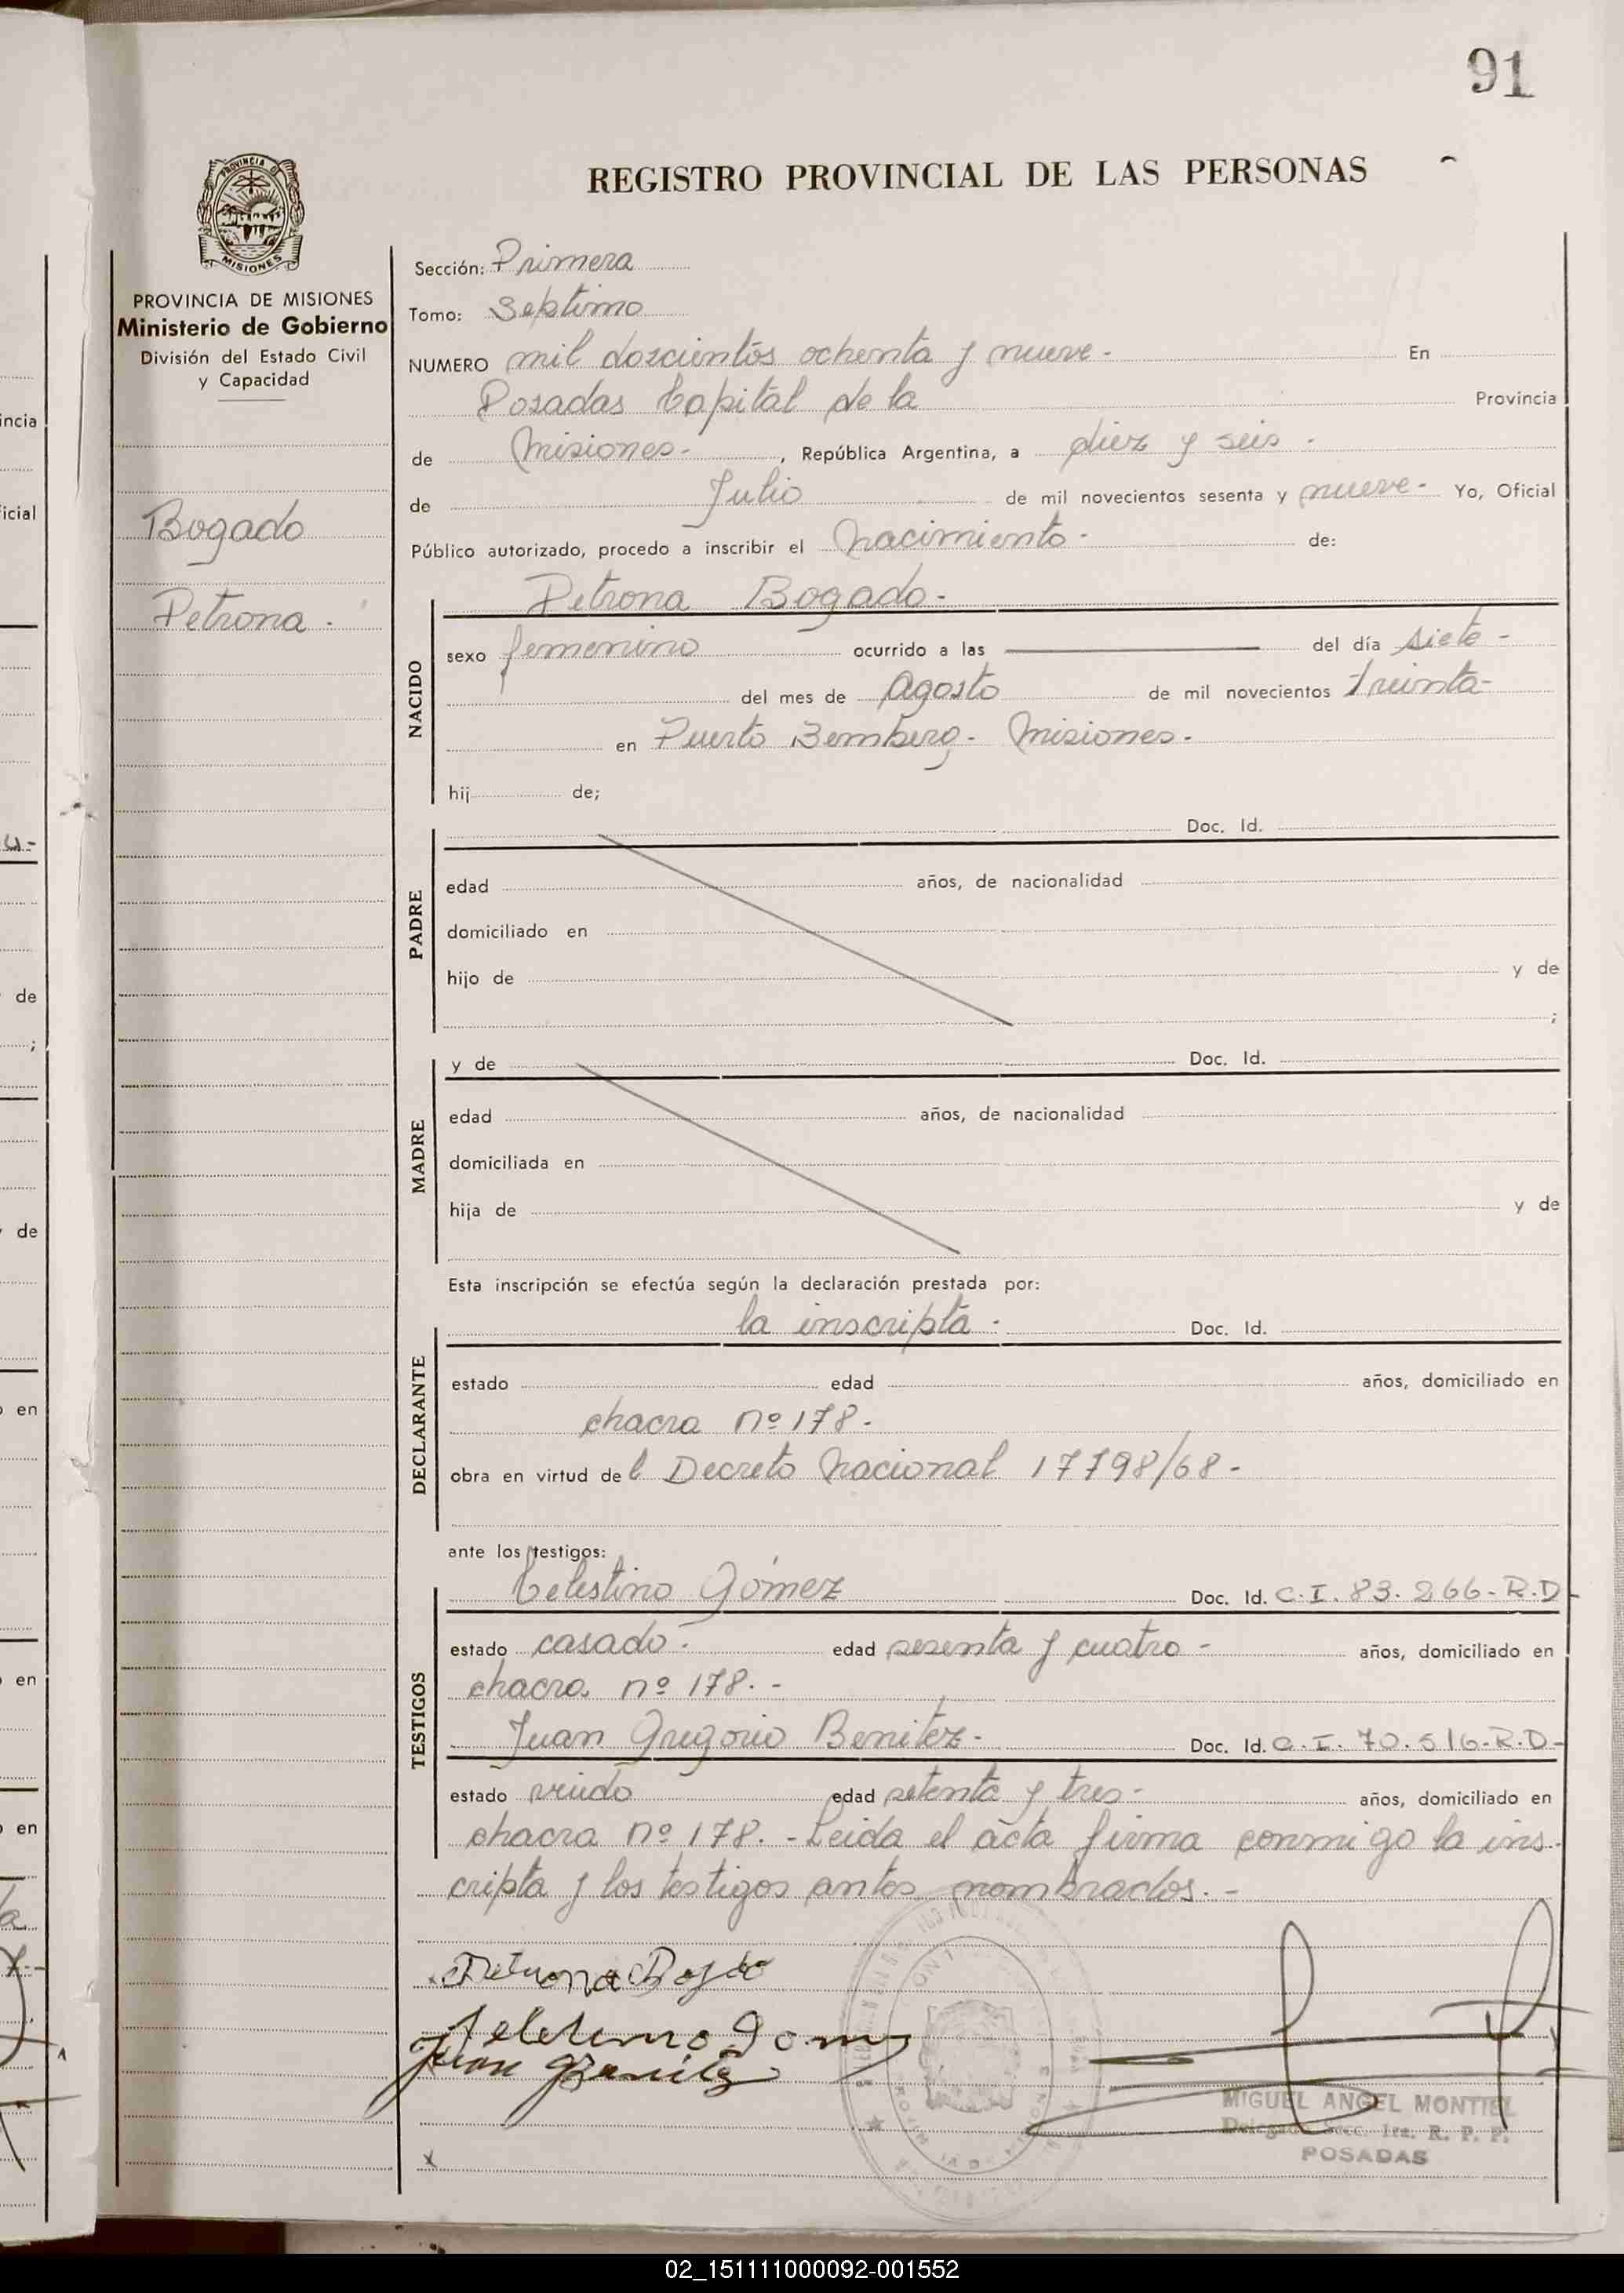 91
REGISTRO PROVINCIAL DE LAS PERSONAS
PROVINCIA DE MISIONES
Ministerio de Gobierno
División del Estado Civil
y Capacidad
Bogado
Petrona.
Sección: Primera
Tomo: Septimo
NUMERO mil doscientos ochenta y nueve - En
Posadas Capital de la Provincia
de Misiones -, República Argentina, a diez y seis -
de Julio de mil novecientos sesenta y nueve - Yo, Oficial
Público autorizado, procedo a inscribir el Nacimiento - de:
NACIDO
Petrona Bogado -
sexo femenino ocurrido a las del día siete -
del mes de Agosto de mil novecientos treinta -
en Puerto Bemberg - Misiones -
hij de;
PADRE
Doc. Id.
edad años, de nacionalidad
domiciliado en
hijo de y de
;
MADRE
y de Doc. Id.
edad años, de nacionalidad
domiciliada en
hija de y de
Esta inscripción se efectúa según la declaración prestada por:
DECLARANTE
la inscripta - Doc. Id.
estado edad años, domiciliado en
chacra nº 178 -
obra en virtud del Decreto Nacional 17798/68 -
ante los testigos:
TESTIGOS
Celestino Gómez Doc. Id. C.I. 83.266 - R.D -
estado casado - edad sesenta y cuatro - años, domiciliado en
chacra nº 178. -
Juan Gregorio Benitez - Doc. Id. C.I. 70.516 - R.D -
estado viudo edad setenta y tres - años, domiciliado en
chacra nº 178. - Leida el acta firma conmigo la ins-
cripta y los testigos antes nombrados. -
Petrona Bogado
Celestino Gomez
Juan G Benitez
MIGUEL ANGEL MONTIEL
Delegado Secc. 1ra. R. P. P.
POSADAS
02_151111000092-001552